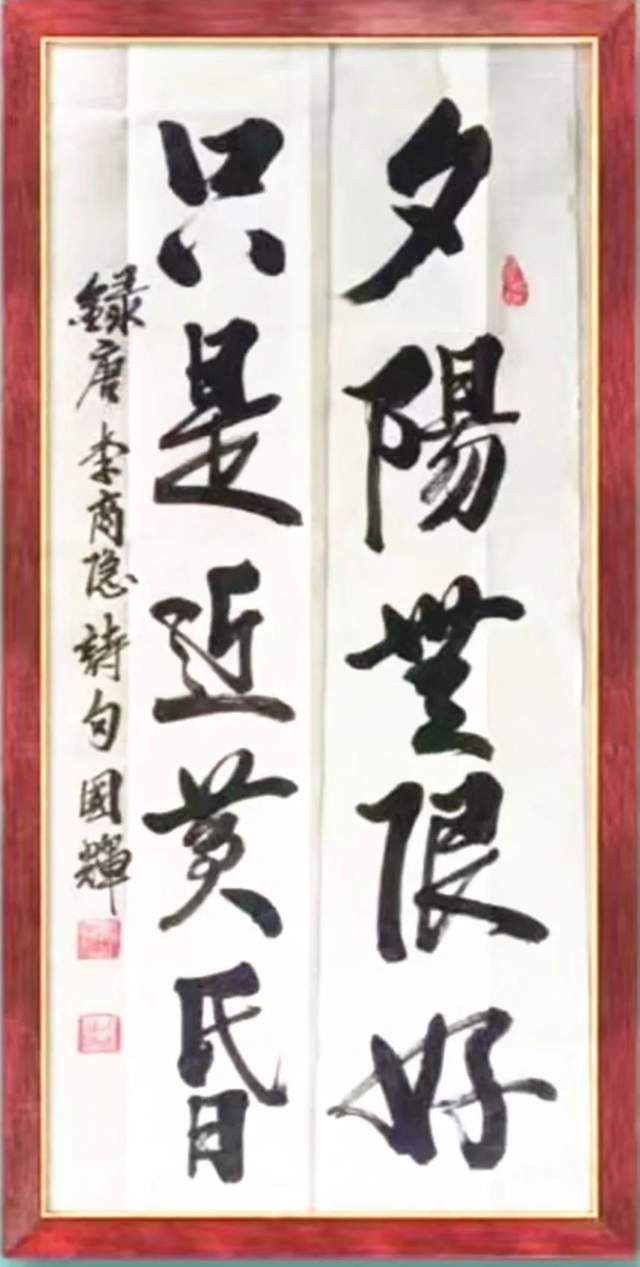 夕陽無限好
只是近黄昏
録唐李商隐詩句國輝